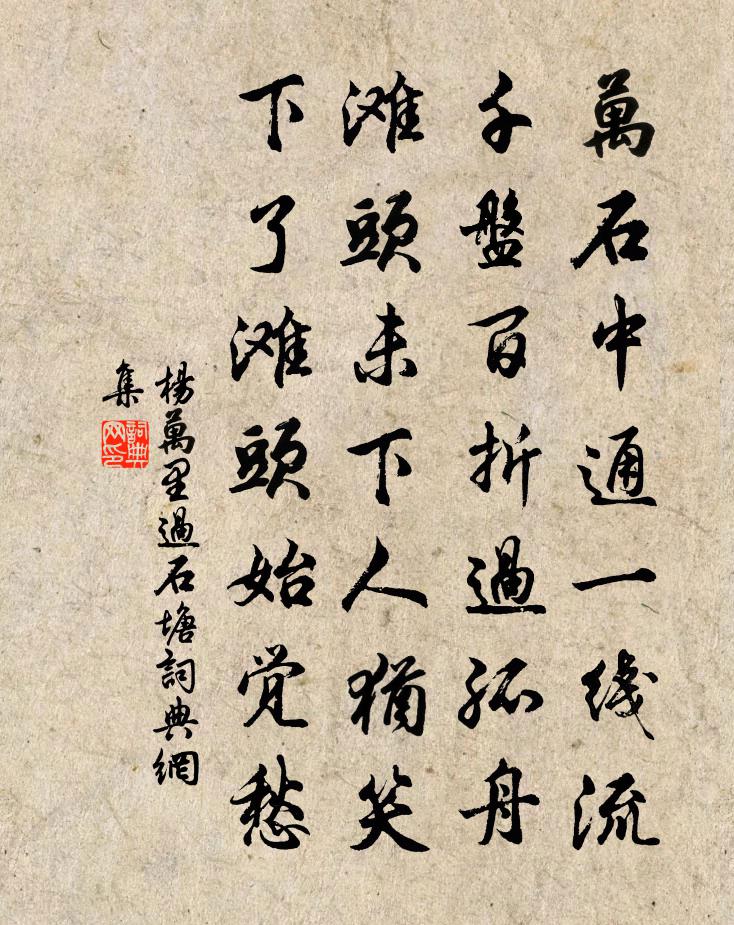 萬石中通一线流
千盤百折過孤舟
滩頭未下人猶笑
下了滩頭始觉愁
楊萬里過石塘詞典網
集
詞典
网印